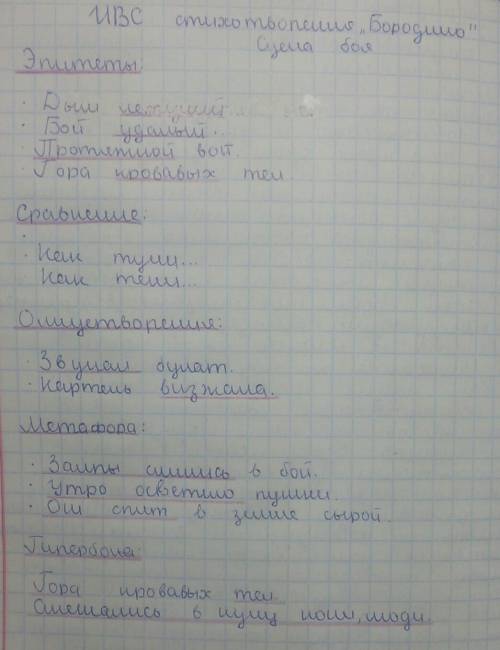 ИВС стихотворения „Бородино"
Сцена боя
Эпитеты:
· Дым летучий...
· Бой удалый...
· Протяжной вой.
· Гора кровавых тел.
Сравнение:
·
· Как тучи...
· Как тени...
Олицетворения:
· Звучал булат.
· Картечь визжала.
Метафора:
· Залпы слились в вой.
· Утро осветило пушки.
· Они спят в земле сырой.
Гипербола:
Гора кровавых тел
Смешались в кучу кони, люди.